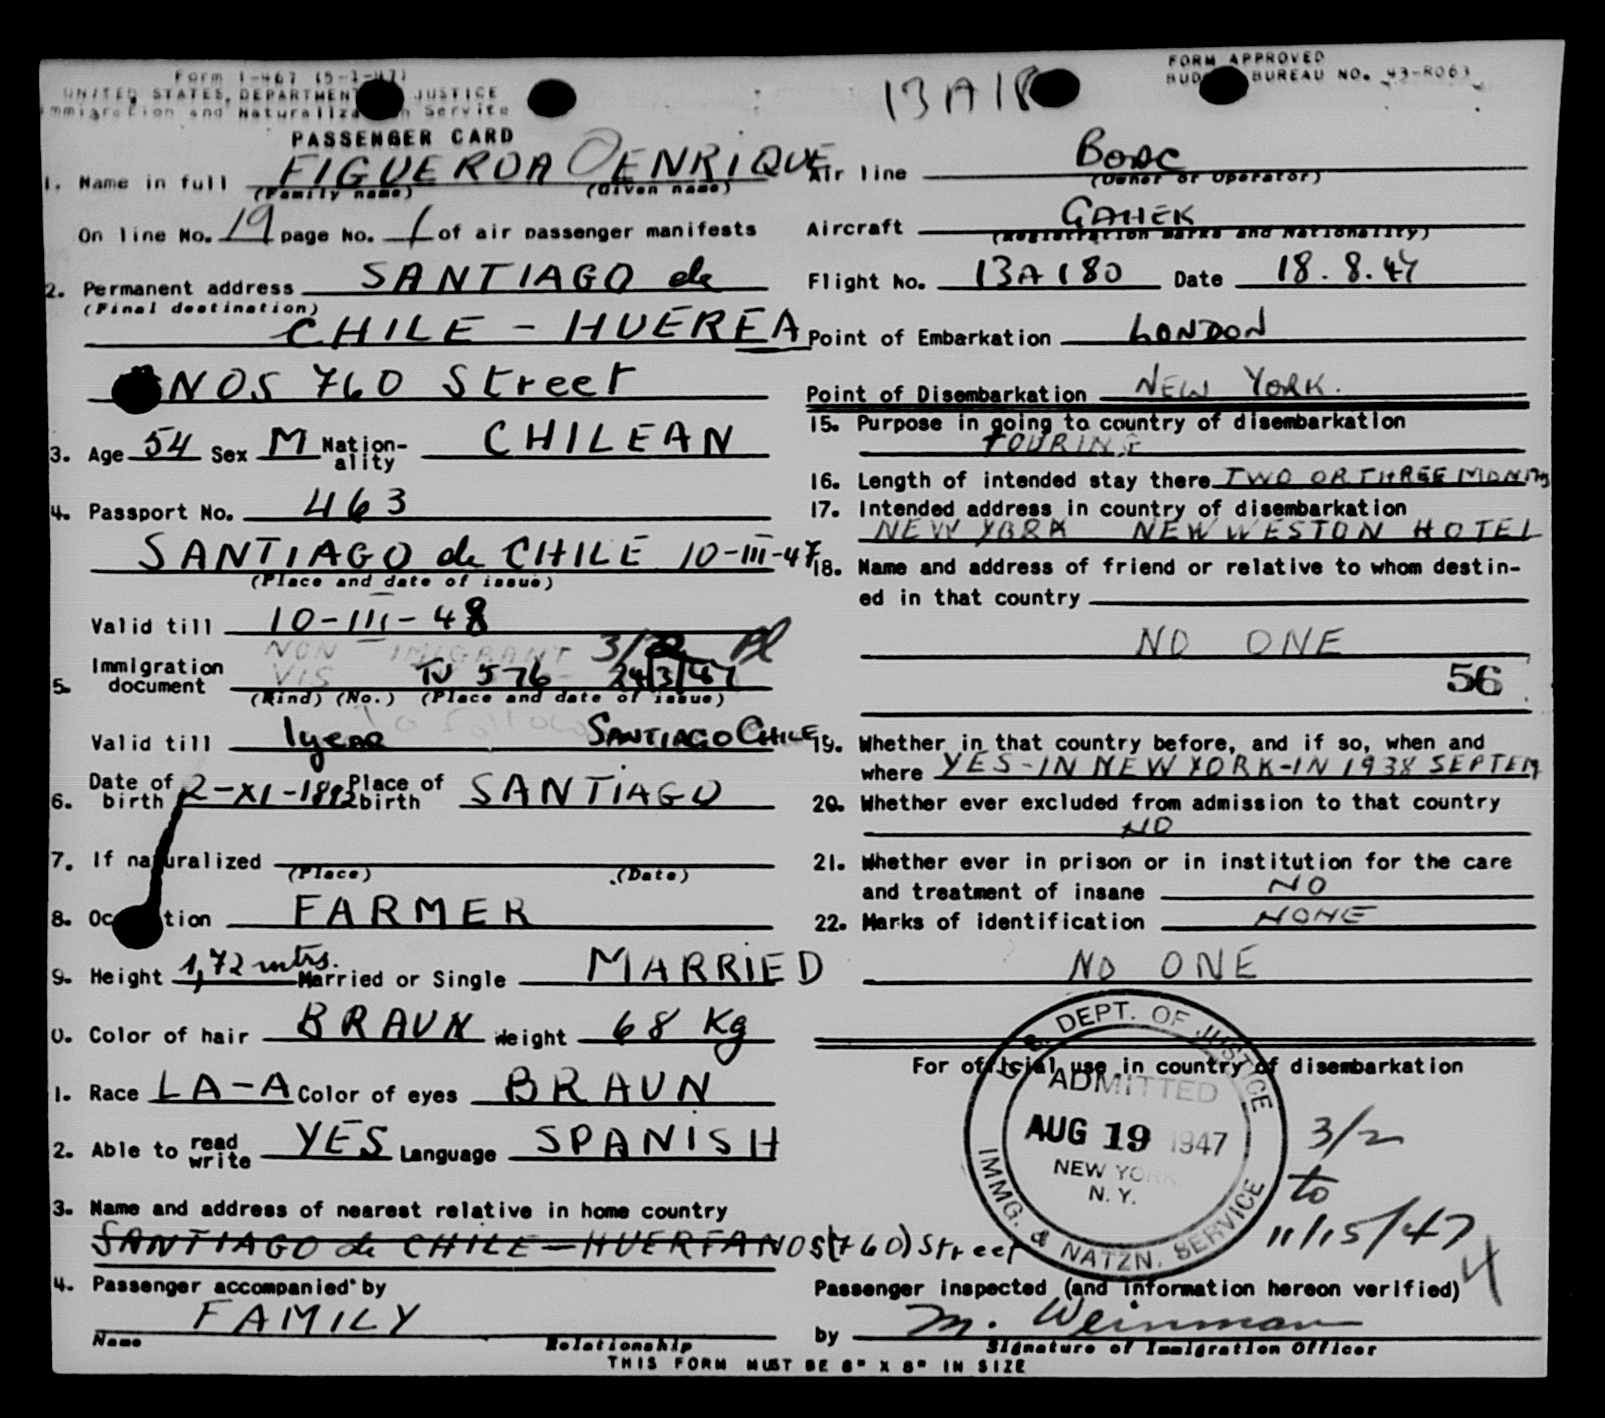 Form I-467 (5-1-47)
UNITED STATES DEPARTMENT JUSTICE
Immigration and Naturalization Service
PASSENGER CARD
13A18
FORM APPROVED
BUD BUREAU NO. 43-R063
1. Name in full FIGUEROA ENRIQUE
(Family name) (Given name)
On line No. 19 page No. 1 of air passenger manifests
2. Permanent address SANTIAGO de
(Final destination)
CHILE - HUERFA
NOS 760 Street
3. Age 54 Sex M Nation-ality CHILEAN
4. Passport No. 463
SANTIAGO de CHILE 10-III-47
(Place and date of issue)
Valid till 10-III-48
NON IMIGRANT 3/2
5. Immigration document VIS TV 576 24/3/47
(Kind) (No.) (Place and date of issue)
Valid till 1 year SANTIAGO CHILE
6. Date of birth 2-XI-1892 Place of birth SANTIAGO
7. If naturalized
(Place) (Date)
8. Oc tion FARMER
9. Height 1,72 mtrs. Married or Single MARRIED
0. Color of hair BRAUN Weight 68 Kg
1. Race LA-A Color of eyes BRAUN
2. Able to read write YES Language SPANISH
3. Name and address of nearest relative in home country
SANTIAGO de CHILE - HUERFANOS (760) Street
4. Passenger accompanied by
FAMILY
Name Relationship
Air line BOAC
(Owner or Operator)
Aircraft GAHEK
(Registration marks and Nationality)
Flight No. 13A180 Date 18.8.47
Point of Embarkation LONDON
Point of Disembarkation NEW YORK.
15. Purpose in going to country of disembarkation
TOURING
16. Length of intended stay there TWO OR THREE MONTHS
17. Intended address in country of disembarkation
NEW YORK NEW WESTON HOTEL
18. Name and address of friend or relative to whom destin-
ed in that country
NO ONE
56
19. Whether in that country before, and if so, when and
where YES-IN NEW YORK-IN 1938 SEPTEM
20. Whether ever excluded from admission to that country
NO
21. Whether ever in prison or in institution for the care
and treatment of insane NO
22. Marks of identification NONE
NO ONE
For official use in country of disembarkation
U. S. DEPT. OF JUSTICE
ADMITTED
AUG 19 1947
NEW YORK
N. Y.
IMMG. & NATZN. SERVICE
3/2
to
11/15/47
Passenger inspected (and information hereon verified)
by M. Weinman
Signature of Immigration Officer
THIS FORM MUST BE 8" X 8" IN SIZE